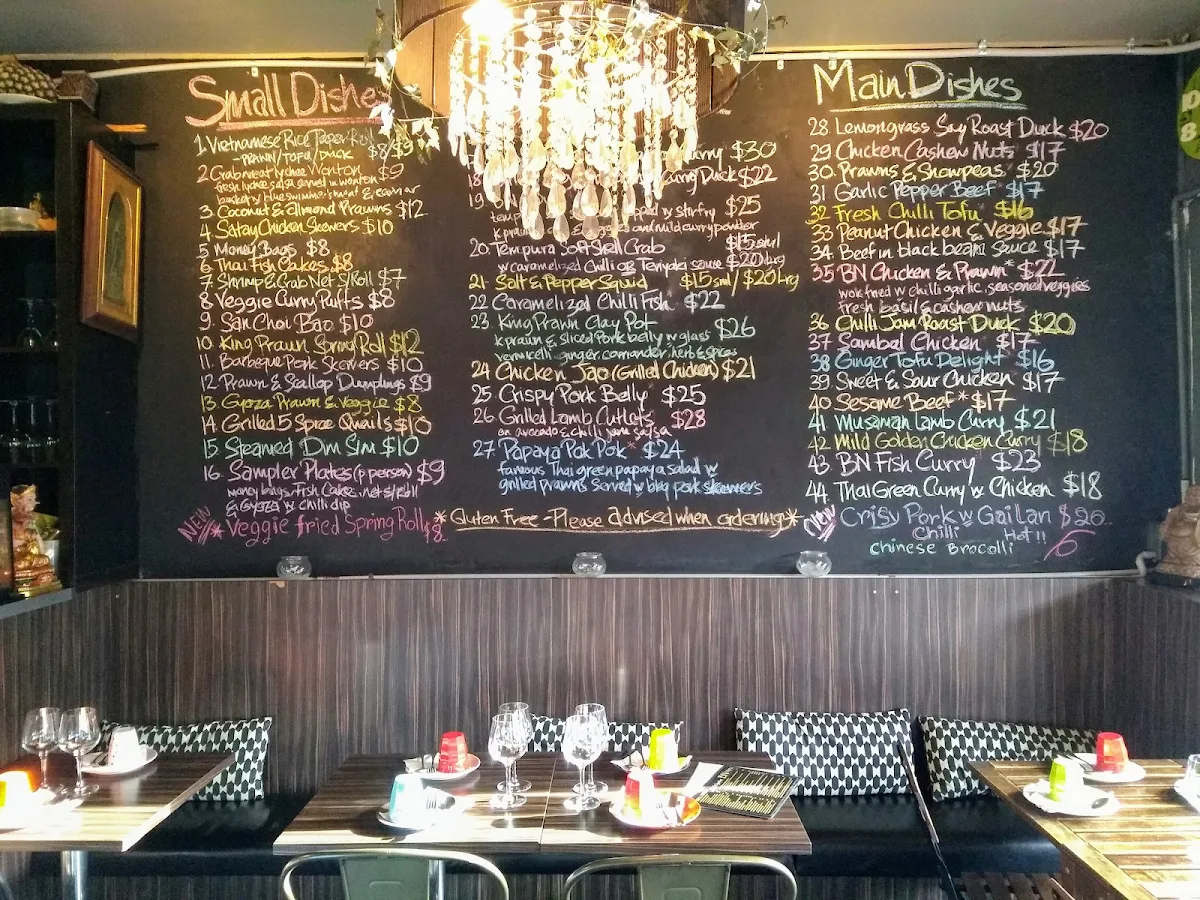 Small Dishes
1. Vietnamese Rice Paper Roll
- PRAWN/TOFU/DUCK $8/$9
2 Crabmeat lychee Wonton $9
fresh lychee salsa served in wonton
basket w blue swimmer meat & caviar
3. Coconut & almond Prawns $12
4. Satay Chicken Skewers $10
5 Money Bags $8
6 Thai Fish Cakes $8
7 Shrimp & Crab Net S/Roll $7
8 Veggie Curry Puffs $8
9. San Choi Bao $10
10. King Prawn Spring Roll $12
11. Barbeque Pork Skewers $10
12 Prawn & Scallop Dumplings $9
13. Gyoza Prawn & Veggie $8
14. Grilled 5 Spice Quails $10
15 Steamed Dim Sim $10
16. Sampler Plates (p person) $9
money bags, Fish Cake, net s/roll
& Gyoza w chilli dip
NEW * Veggie fried Spring Roll $8
Curry $30
18. Duck $22
19. $25
stirfry
k prawn and mild curry powder
20. Tempura Soft Shell Crab $15 sml
w caramelized chilli or Teriyaki sauce $20 lrg
21. Salt & Pepper Squid $15 sml / $20 lrg
22 Caramelized Chilli Fish $22
23. King Prawn Clay Pot $26
k prawn & sliced Pork belly w glass
vermicelli ginger, coriander, herb & spices
24 Chicken Jao (Grilled Chicken) $21
25. Crispy Pork Belly $25
26 Grilled Lamb Cutlets $28
on avocado & chilli jam salsa
27 Papaya Pok Pok * $24
famous Thai green papaya salad w
grilled prawns served w bbq pork skewers
* Gluten Free - Please advised when ordering *
Main Dishes
28. Lemongrass Soy Roast Duck $20
29 Chicken Cashew Nuts $17
30. Prawns & Snowpeas $20
31 Garlic Pepper Beef $17
32 Fresh Chilli Tofu $16
33 Peanut Chicken & Veggie $17
34 Beef in black bean Sauce $17
35 BN Chicken & Prawn * $22
wok fried w chilli garlic, seasoned veggies
fresh basil & cashew nuts
36 Chilli Jam Roast Duck $20
37 Sambal Chicken $17
38 Ginger Tofu Delight $16
39 Sweet & Sour Chicken $17
40 Sesame Beef * $17
41 Musaman Lamb Curry $21
42 Mild Golden Chicken Curry $18
43 BN Fish Curry $23
44 Thai Green Curry w Chicken $18
NEW Crisy Pork w Gai Lan $20
Chilli Hot!!
chinese Brocolli